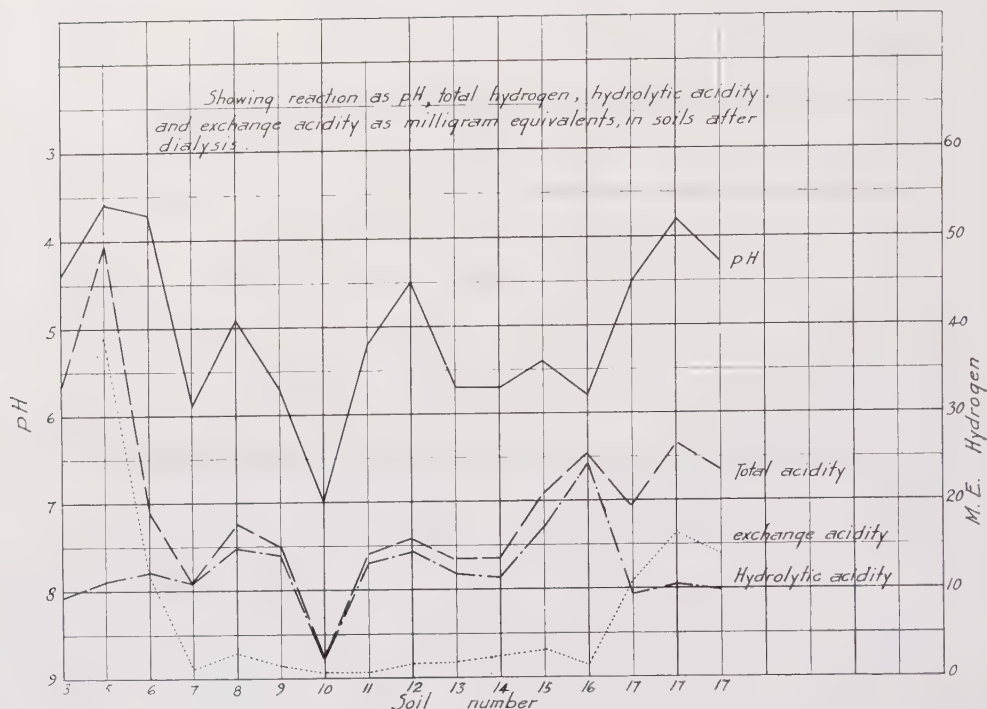 Showing reaction as pH, total hydrogen, hydrolytic acidity,
and exchange acidity as milligram equivalents, in soils after
dialysis.
3
4
5
6
7
8
9
pH
60
50
40
30
20
10
0
M.E. Hydrogen
pH
Total acidity
exchange acidity
Hydrolytic acidity
3 5 6 7 8 9 10 11 12 13 14 15 16 17 17 17
Soil number